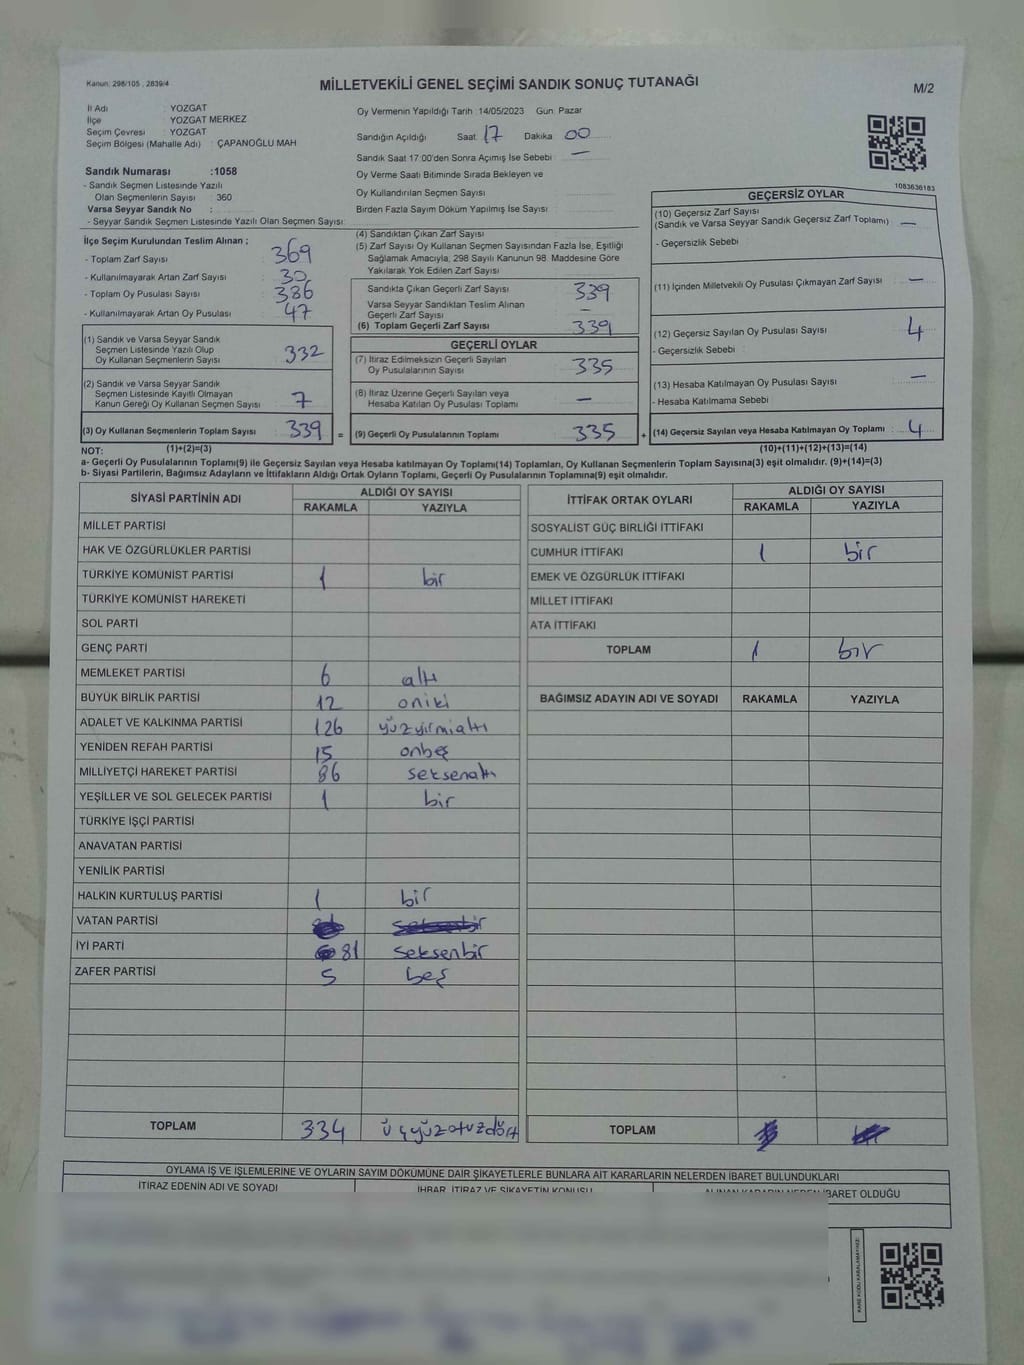 Kanun: 298/105 , 2839/4
MİLLETVEKİLİ GENEL SEÇİMİ SANDIK SONUÇ TUTANAĞI
M/2
İl Adı : YOZGAT
İlçe : YOZGAT MERKEZ
Seçim Çevresi : YOZGAT
Seçim Bölgesi (Mahalle Adı) : ÇAPANOĞLU MAH
Sandık Numarası :1058
- Sandık Seçmen Listesinde Yazılı
Olan Seçmenlerin Sayısı : 360
Varsa Seyyar Sandık No :
- Seyyar Sandık Seçmen Listesinde Yazılı Olan Seçmen Sayısı:
Oy Vermenin Yapıldığı Tarih :14/05/2023 Gün: Pazar
Sandığın Açıldığı Saat: 17 Dakika 00
Sandık Saat 17:00'den Sonra Açımış İse Sebebi : —
Oy Verme Saati Bitiminde Sırada Bekleyen ve
Oy Kullandırılan Seçmen Sayısı :
Birden Fazla Sayım Döküm Yapılmış İse Sayısı :
1083636183
İlçe Seçim Kurulundan Teslim Alınan ;
- Toplam Zarf Sayısı : 369
- Kullanılmayarak Artan Zarf Sayısı : 30
- Toplam Oy Pusulası Sayısı : 386
- Kullanılmayarak Artan Oy Pusulası : 47
(1) Sandık ve Varsa Seyyar Sandık
Seçmen Listesinde Yazılı Olup
Oy Kullanan Seçmenlerin Sayısı : 332
(2) Sandık ve Varsa Seyyar Sandık
Seçmen Listesinde Kayıtlı Olmayan
Kanun Gereği Oy Kullanan Seçmen Sayısı : 7
(3) Oy Kullanan Seçmenlerin Toplam Sayısı : 339 =
(4) Sandıktan Çıkan Zarf Sayısı :
(5) Zarf Sayısı Oy Kullanan Seçmen Sayısından Fazla İse, Eşitliği
Sağlamak Amacıyla, 298 Sayılı Kanunun 98. Maddesine Göre
Yakılarak Yok Edilen Zarf Sayısı :
Sandıkta Çıkan Geçerli Zarf Sayısı : 339
Varsa Seyyar Sandıktan Teslim Alınan
Geçerli Zarf Sayısı : —
(6) Toplam Geçerli Zarf Sayısı : 339
GEÇERLİ OYLAR
(7) İtiraz Edilmeksizin Geçerli Sayılan
Oy Pusulalarının Sayısı : 335
(8) İtiraz Üzerine Geçerli Sayılan veya
Hesaba Katılan Oy Pusulası Toplamı : —
(9) Geçerli Oy Pusulalarının Toplamı : 335 +
GEÇERSİZ OYLAR
(10) Geçersiz Zarf Sayısı
(Sandık ve Varsa Seyyar Sandık Geçersiz Zarf Toplamı) : —
- Geçersizlik Sebebi :
(11) İçinden Milletvekili Oy Pusulası Çıkmayan Zarf Sayısı : —
(12) Geçersiz Sayılan Oy Pusulası Sayısı : 4
- Geçersizlik Sebebi :
(13) Hesaba Katılmayan Oy Pusulası Sayısı : —
- Hesaba Katılmama Sebebi :
(14) Geçersiz Sayılan veya Hesaba Katılmayan Oy Toplamı : 4
NOT: (1)+(2)=(3) (10)+(11)+(12)+(13)=(14)
a- Geçerli Oy Pusulalarının Toplamı(9) ile Geçersiz Sayılan veya Hesaba katılmayan Oy Toplamı(14) Toplamları, Oy Kullanan Seçmenlerin Toplam Sayısına(3) eşit olmalıdır. (9)+(14)=(3)
b- Siyasi Partilerin, Bağımsız Adayların ve İttifakların Aldığı Ortak Oyların Toplamı, Geçerli Oy Pusulalarının Toplamına(9) eşit olmalıdır.
SİYASİ PARTİNİN ADI ALDIĞI OY SAYISI
RAKAMLA YAZIYLA
MİLLET PARTİSİ
HAK VE ÖZGÜRLÜKLER PARTİSİ
TÜRKİYE KOMÜNİST PARTİSİ 1 bir
TÜRKİYE KOMÜNİST HAREKETİ
SOL PARTİ
GENÇ PARTİ
MEMLEKET PARTİSİ 6 altı
BÜYÜK BİRLİK PARTİSİ 12 oniki
ADALET VE KALKINMA PARTİSİ 126 yüzyirmialtı
YENİDEN REFAH PARTİSİ 15 onbeş
MİLLİYETÇİ HAREKET PARTİSİ 86 seksenaltı
YEŞİLLER VE SOL GELECEK PARTİSİ 1 bir
TÜRKİYE İŞÇİ PARTİSİ
ANAVATAN PARTİSİ
YENİLİK PARTİSİ
HALKIN KURTULUŞ PARTİSİ 1 bir
VATAN PARTİSİ
İYİ PARTİ 81 seksenbir
ZAFER PARTİSİ 5 beş
TOPLAM 334 üçyüzotuzdört
İTTİFAK ORTAK OYLARI ALDIĞI OY SAYISI
RAKAMLA YAZIYLA
SOSYALİST GÜÇ BİRLİĞİ İTTİFAKI
CUMHUR İTTİFAKI 1 bir
EMEK VE ÖZGÜRLÜK İTTİFAKI
MİLLET İTTİFAKI
ATA İTTİFAKI
TOPLAM 1 bir
BAĞIMSIZ ADAYIN ADI VE SOYADI RAKAMLA YAZIYLA
TOPLAM
OYLAMA İŞ VE İŞLEMLERİNE VE OYLARIN SAYIM DÖKÜMÜNE DAİR ŞİKAYETLERLE BUNLARA AİT KARARLARIN NELERDEN İBARET BULUNDUKLARI
İTİRAZ EDENİN ADI VE SOYADI İHBAR, İTİRAZ VE ŞİKAYETİN KONUSU ALINAN KARARIN NEDEN İBARET OLDUĞU
KARE KODU KARALAMAYINIZ!